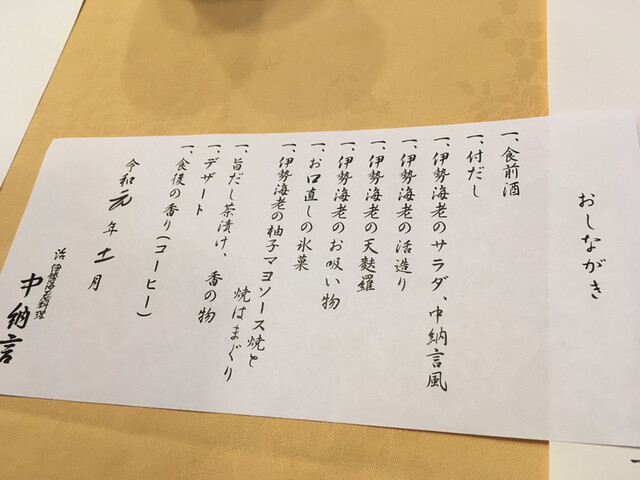 おしながき
一、食前酒
一、付だし
一、伊勢海老のサラダ、中納言風
一、伊勢海老の活造り
一、伊勢海老の天麩羅
一、伊勢海老のお吸い物
一、お口直しの氷菓
一、伊勢海老の柚子マヨソース焼と
焼はまぐり
一、旨だし茶漬け、 香の物
一、デザート
一、食後の香り(コーヒー)
令和元年十一月
活伊勢海老料理
中納言